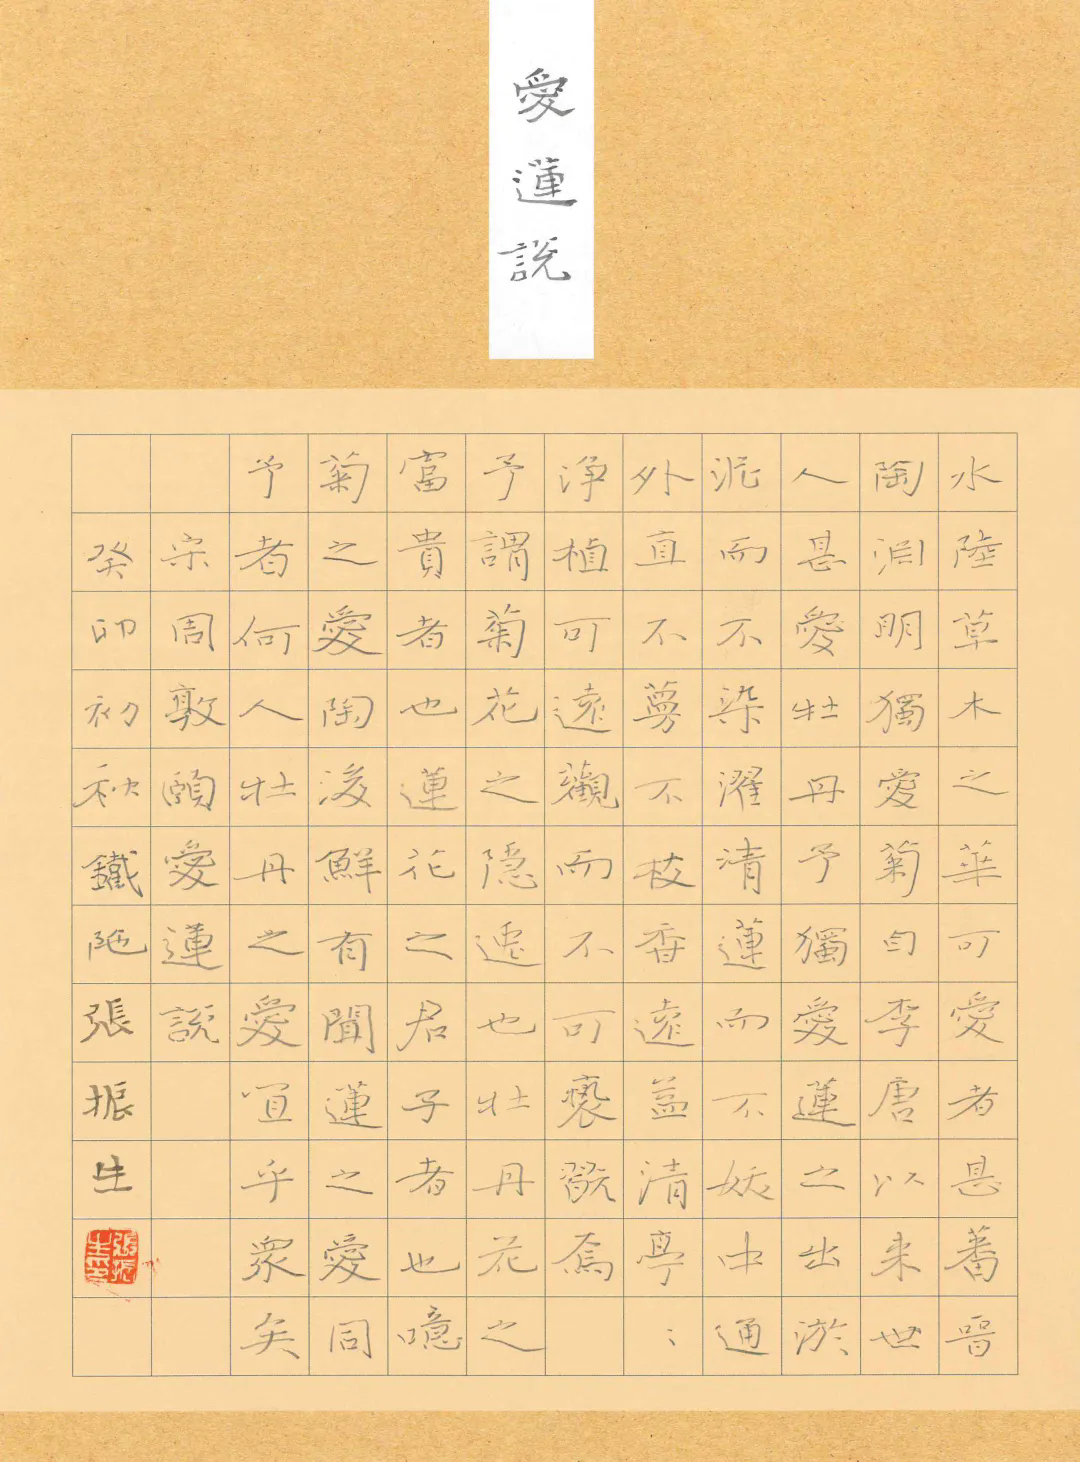 愛蓮説
水陸草木之華可愛者甚蕃晉
陶渊明獨愛菊自李唐以来世
人甚愛牡丹予獨愛蓮之出淤
泥而不染濯清蓮而不妖中通
外直不蔓不枝香遠益清亭〻
淨植可遠觀而不可褻翫焉
予謂菊花之隱逸也牡丹花之
富貴者也蓮花之君子者也噫
菊之愛陶後鮮有聞蓮之愛同
予者何人牡丹之愛宜乎衆矣
宋周敦頤愛蓮説
癸卯初秋鐵陁張振生
張振生印